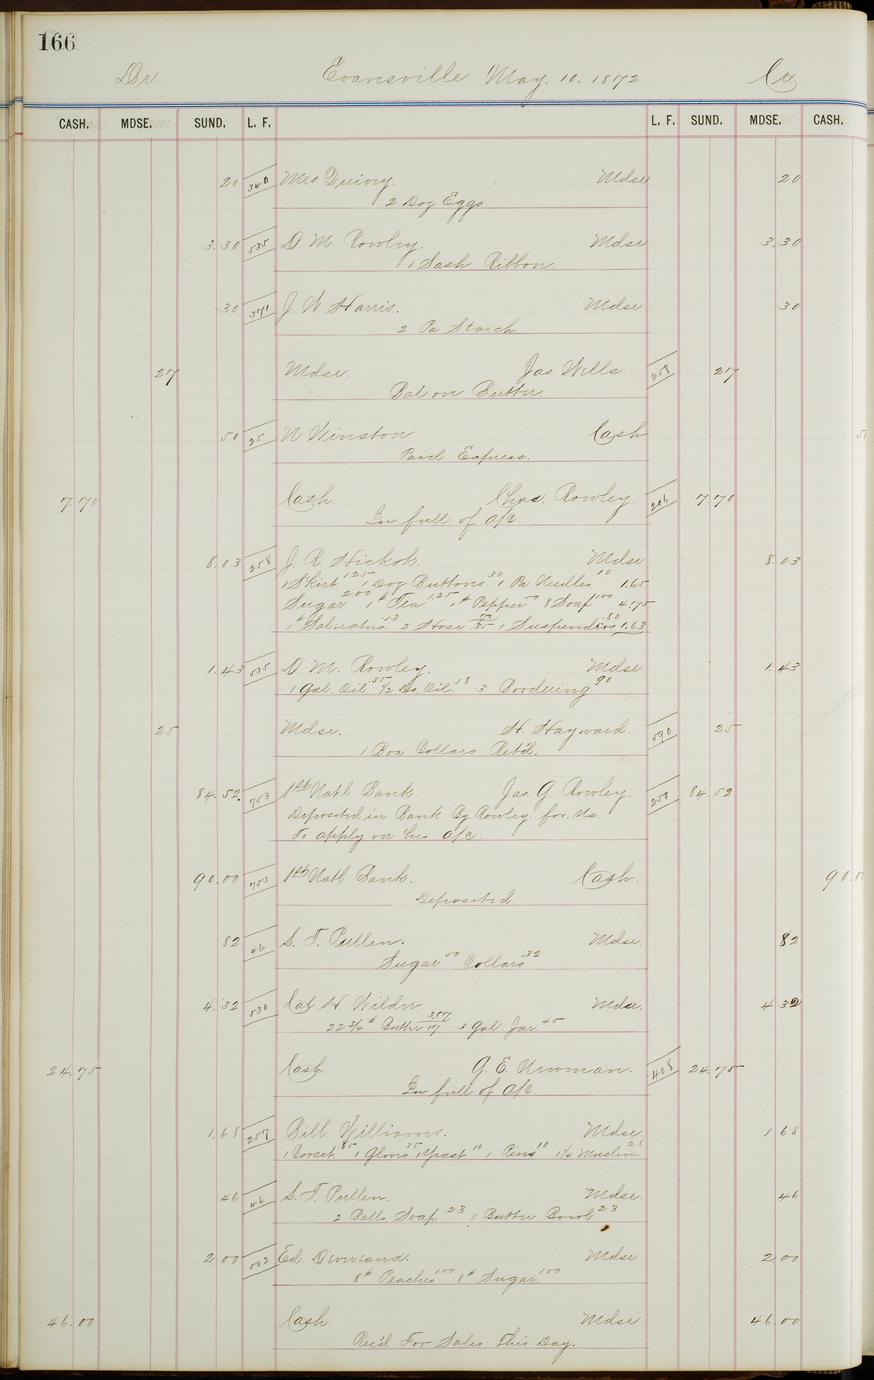 166
Dr Evansville May. 10. 1872 Cr
CASH. MDSE. SUND. L. F. L. F. SUND. MDSE. CASH.
20 340 Mrs Mdse 20
2 Doz Eggs
3.30 535 D. M. Rowley. Mdse 3.30
1 Sash Ribbon.
30 371 J. W Harris. Mdse 30
2 Pa Starch
27 Mdse. Jas Wells. 27
Bal on Butter.
50 25 N Winston Cash
Paid Express.
7.70 Cash. Chas. Rowley. 206 7.70
In full of a/c
8.03 258 J. R. Hickok. Mdse 8.03
1 Skirt 1.25 1 Doz Buttons 30 1 Pa Needles 10 1.65
Sugar 2.00 1# Tea 1.25 1# Pepper 50 8 Soap 1.00 4.75
1# Salaratus 13 2 Hose 1 Suspenders .80 1.63
1.43 535 D. M. Rowley. Mdse 1.43
1 Gal. Oil .35 1/2 Do. Oil .18 3 Bordering 90
25 Mdse. H. Hayward. 590 25
1 Box Collars Ret'd.
84.52 753 1st Natl Bank. Jas G. Rowley. 258 84.52
Deposited in Bank By Rowley. for. Us
To apply on his a/c.
90.00 753 1st Natl. Bank. Cash. 90.0
Deposited
82 46 S. T. Pullen. Mdse. 82
Sugar 50 Collars .32
4.32 530 Cal H. Wilder Mdse. 4 32
22 3/4 # Butter 17 3.87 3 Gal Jar. 45
24.75 Cash G. E. Newman. 408 24.75
In full of a/c
1.68 257 Bill Williams. Mdse 1 68
1 Corset .85 1 Gloves 35 1 Yeast 10 1 Pins 10 Muslin 28
46 46 S. T. Pullen. Mdse. 46
2 Balls Soap 23 1 Butter Bowl 23
2.00 502 Ed. Mdse 2.00
8# Peaches 1.00 8# Sugar 1.00
46.00 Cash Mdse 46.00
Rec'd For Sales This Day.